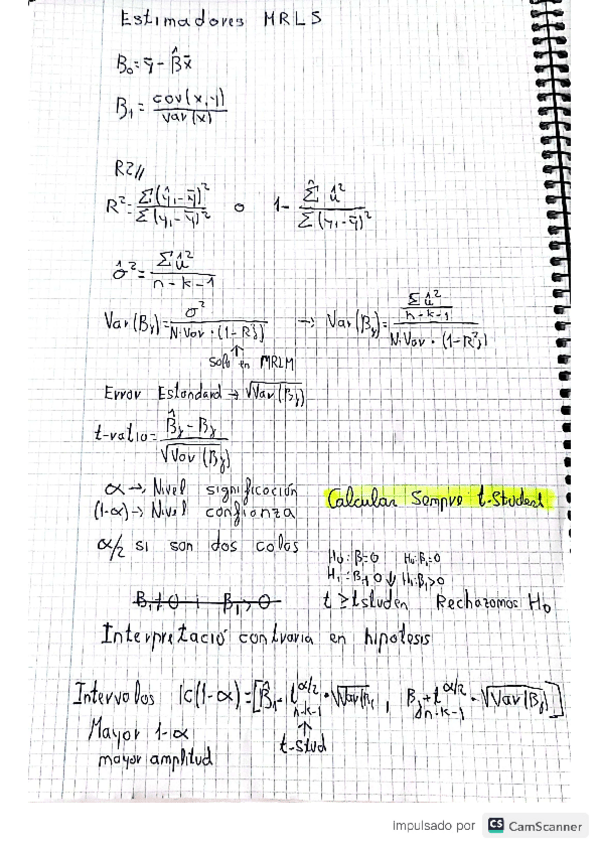 Estimadores MRLS
B₀ = ȳ - β̂x̄
B₁ = cov(x,y) / var(x)
R2//
R² = Σ(ŷᵢ-ȳ)² / Σ(yᵢ-ȳ)² o 1- Σ û² / Σ(yᵢ-ȳ)²
σ̂² = Σ û² / n-k-1
Var(Bⱼ) = σ² / N·Var·(1-R²ⱼ) → Var(Bⱼ) = (Σ û² / n-k-1) / N·Var·(1-R²ⱼ)
↑
solo en MRLM
Error Estandard → √Var(Bⱼ)
t-ratio = B̂ⱼ - Bⱼ / √Var(Bⱼ)
α → Nivel significación
(1-α) → Nivel confianza
Calcular Sempre t-Student
α/2 si son dos colas
H₀: B=0 H₀: B=0
H₁: B≠0 ↓ H₁: B>0
B₁≠0 ; B₁>0 t ≥ tstuden Rechazamos H₀
Interpretació contraria en hipotesis
Intervalos IC(1-α) = [Bⱼ - t^α/2 n-k-1 · √Var(Bⱼ, Bⱼ + t^α/2 n-k-1 · √Var(Bⱼ)]
Mayor 1-α ↑
mayor amplitud t-stud
Impulsado por CS CamScanner